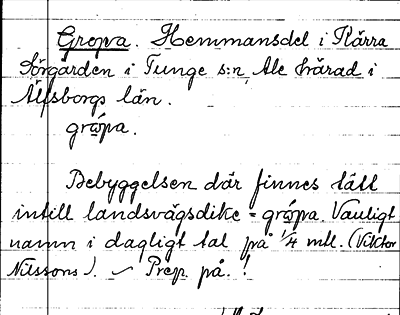 Gropa. Hemmansdel i Kärra
Sörgården i Tunge s:n, Ale härad i
Älfsborgs län.
grωpa.
Bebyggelsen där finnes tätt
intill landsvägsdike = grωpa. Vanligt
namn i dagligt tal på 1/4 mtl. (Viktor
Nilssons). Prep. på. !